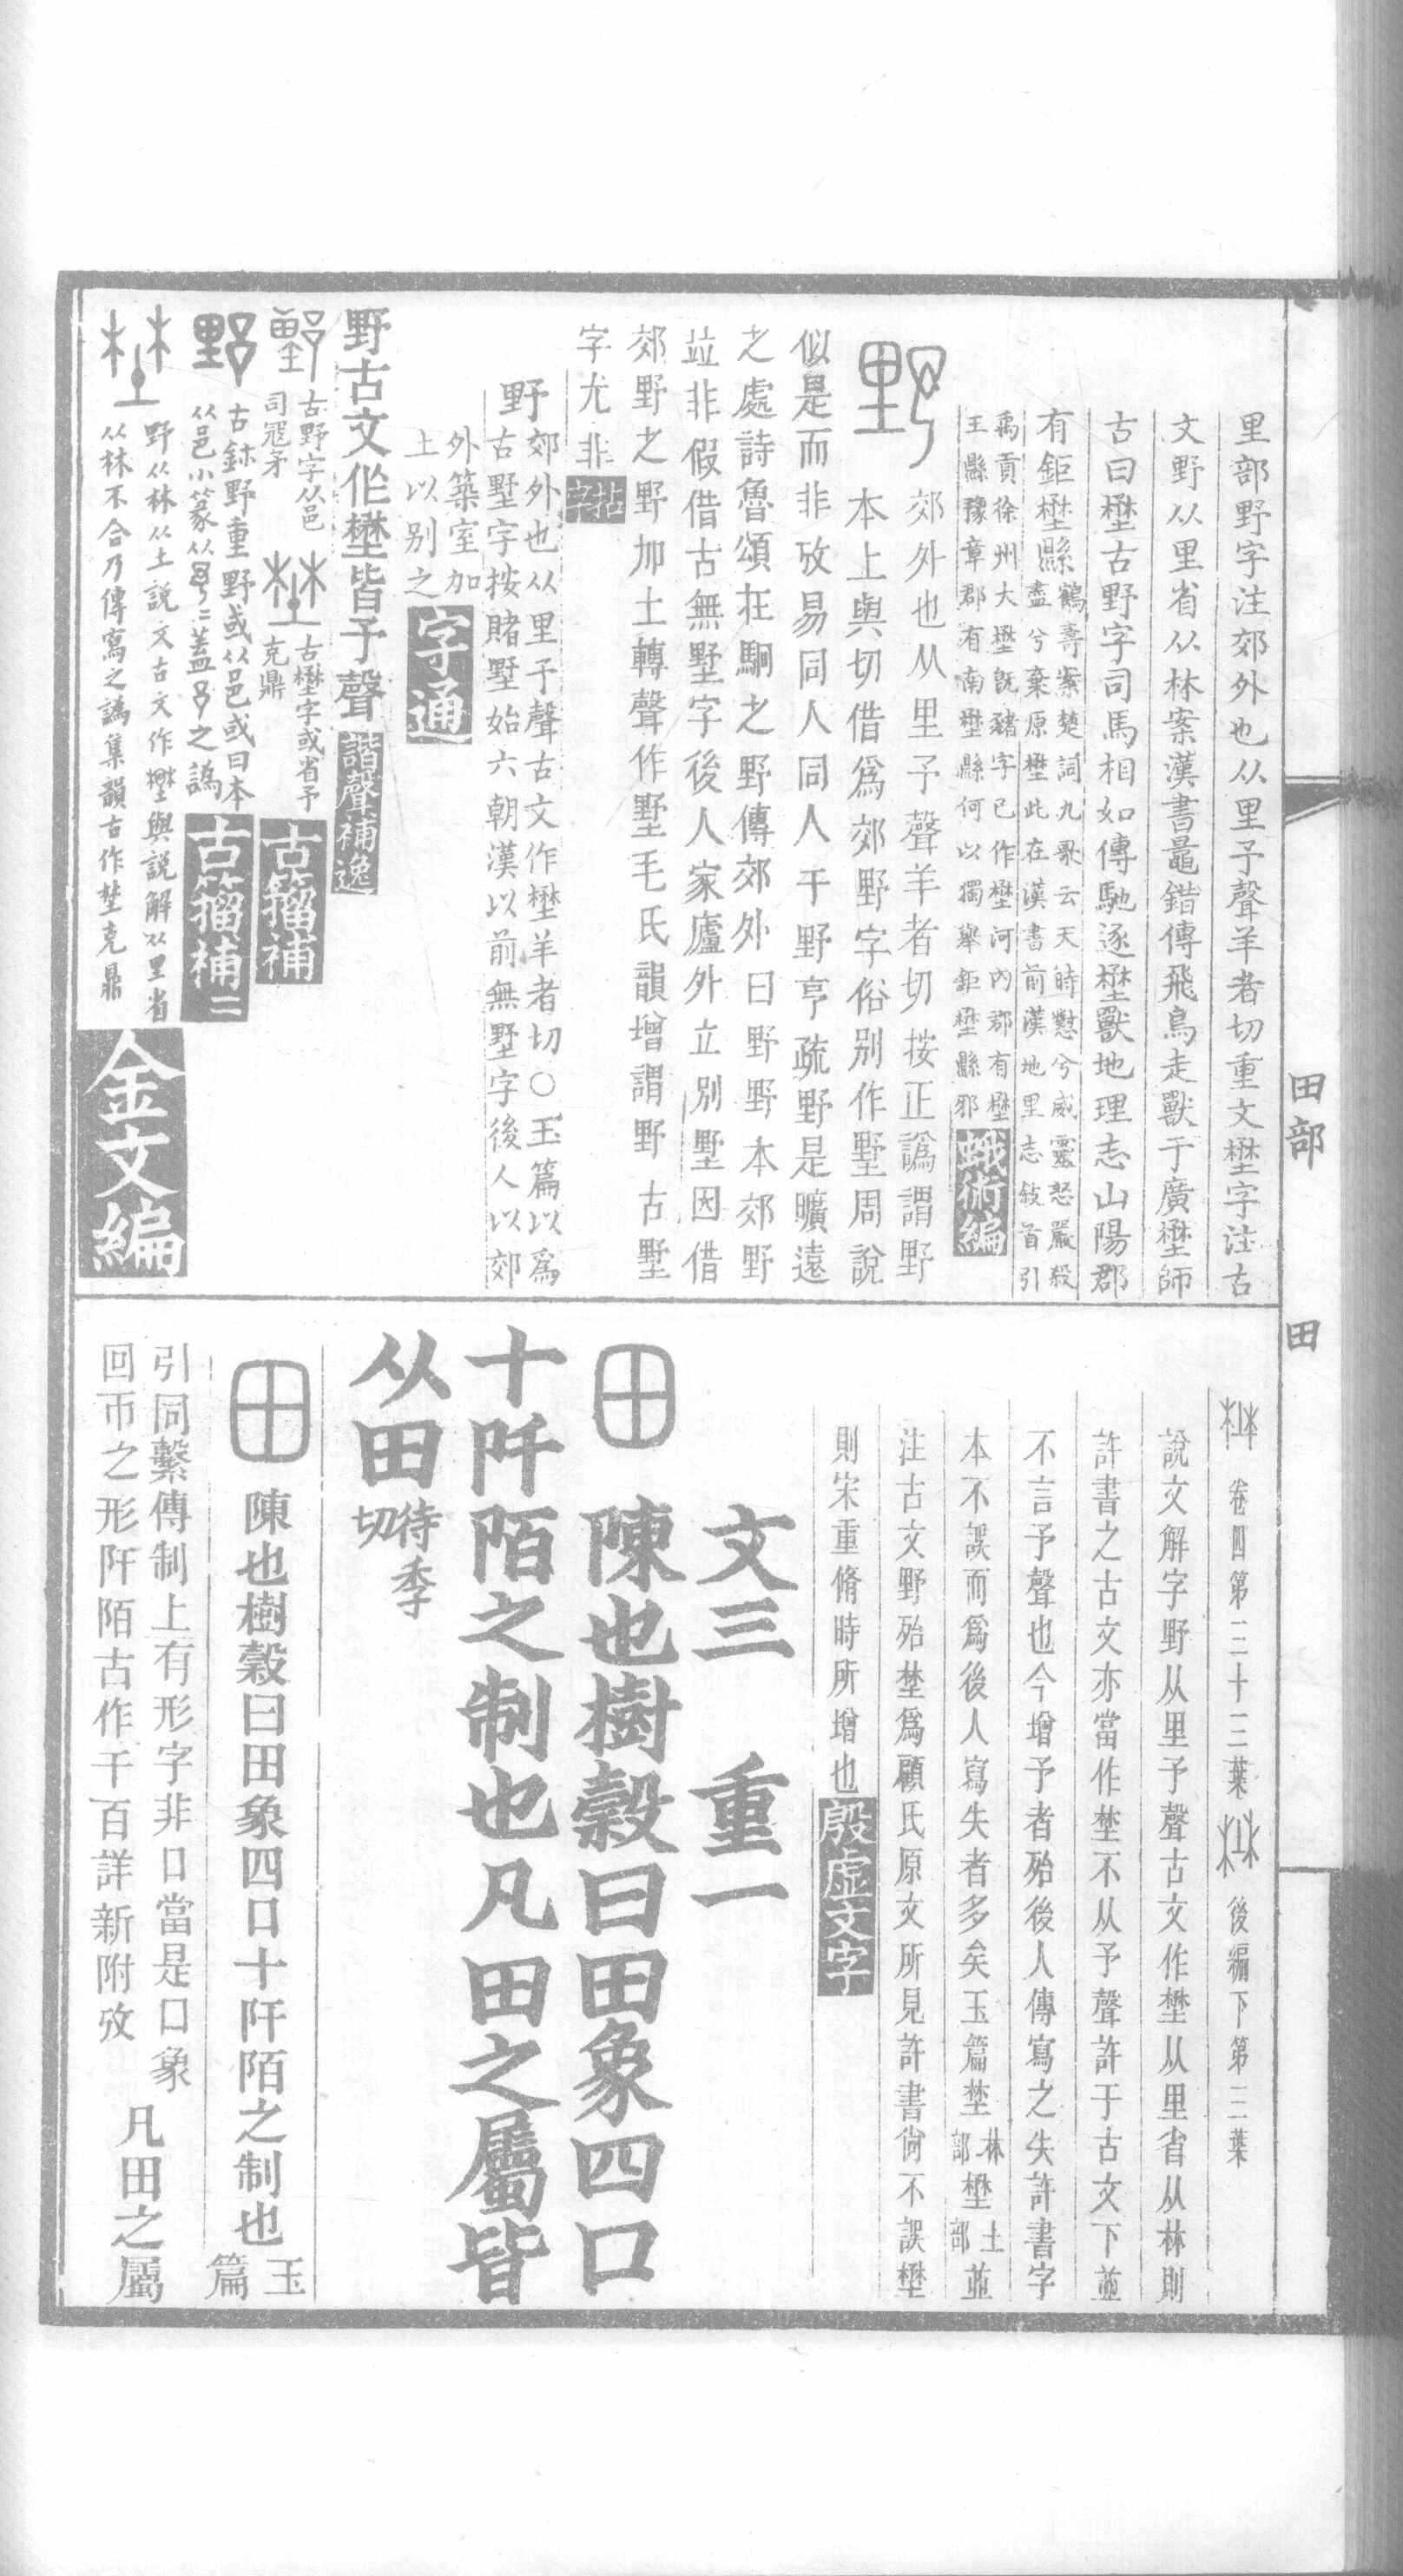 里部野字注郊外也从里予聲羊者切重文壄字注古
文野从里省从林案漢書鼂錯傳飛鳥走獸于廣壄師
古曰壄古野字司馬相如傳馳逐壄獸地理志山陽郡
有鉅壄縣
鶴壽案楚詞九歌云天時懟兮威靈怒嚴殺
盡兮棄原壄此在漢書前漢地里志敍首引
禹貢徐州大壄旣豬字已作壄河內郡有壄
王縣豫章郡有南壄縣何以獨舉鉅壄縣邪
蛾術編
野
郊外也从里予聲羊者切按正譌謂野
本上與切借爲郊野字俗别作墅周說
似是而非攷易同人同人于野亨疏野是曠遠
之處詩魯頌在駉之野傳郊外曰野野本郊野
竝非假借古無墅字後人家廬外立別墅因借
郊野之野加土轉聲作墅毛氏韻增謂野古墅
字尤非
拈字
野
郊外也从里予聲古文作壄羊者切○玉篇以爲
古墅字按賭墅始六朝漢以前無墅字後人以郊
外築室加
土以别之
字通
野古文作壄皆予聲
諧聲補逸
古野字从邑
司寇矛
古壄字或省予
克鼎
古籀補
古鉨野重野或从邑或曰本
从邑小篆从
蓋
之譌
古籀補二
野从林从土說文古文作壄與說解从里省
从林不合乃傳寫之譌集韻古作埜克鼎
金文編
田部
田
卷四第三十三葉
後編下第三葉
說文解字野从里予聲古文作壄从里省从林則
許書之古文亦當作埜不从予聲許于古文下並
不言予聲也今增予者殆後人傳寫之失許書字
本不誤而爲後人寫失者多矣玉篇埜
林部
壄
土部
並
注古文野殆埜爲顧氏原文所見許書尙不誤壄
則宋重脩時所增也
殷虛文字
文三 重一
田
陳也樹穀曰田象四口
十阡陌之制也凡田之屬皆
从田
待季
切
田
陳也樹穀曰田象四口十阡陌之制也
玉篇
引同繫傳制上有形字非口當是囗象
回帀之形阡陌古作千百詳新附攷
凡田之屬